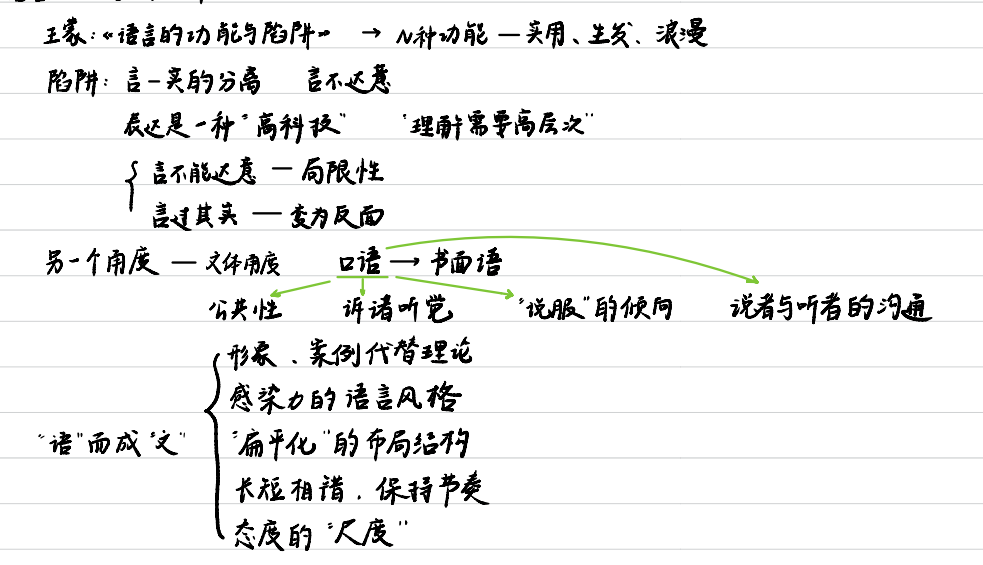 王蒙:《语言的功能与陷阱》 → N种功能 — 实用、生发、浪漫
陷阱: 言—实的分离 言不达意
表达是一种"高科技" "理解需要高层次"
言不能达意 — 局限性
言过其实 — 变为反面
另一个角度 — 文体角度 口语 → 书面语
公共性 诉诸听觉 "说服"的倾向 说者与听者的沟通
形象、案例代替理论
感染力的语言风格
"语"而成"文" "扁平化"的布局结构
长短相错.保持节奏
态度的"尺度"